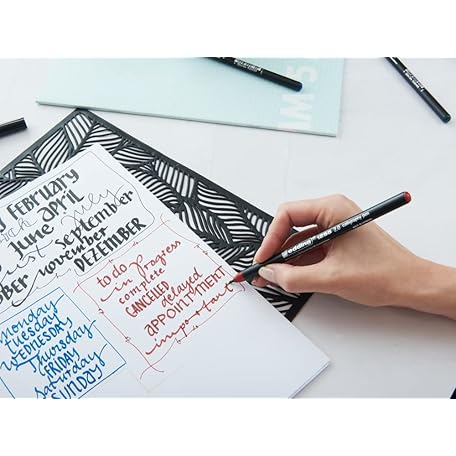 IM 5
FEBRUARY
april
June
July
september
november
DEZEMBER
monday
TUESDAY
WEDNESDAY
Thursday
FRIDAY
saturday
SUNDAY
to do
in progress
complete
CANCELLED delayed
APPOINTMENT
important
edding